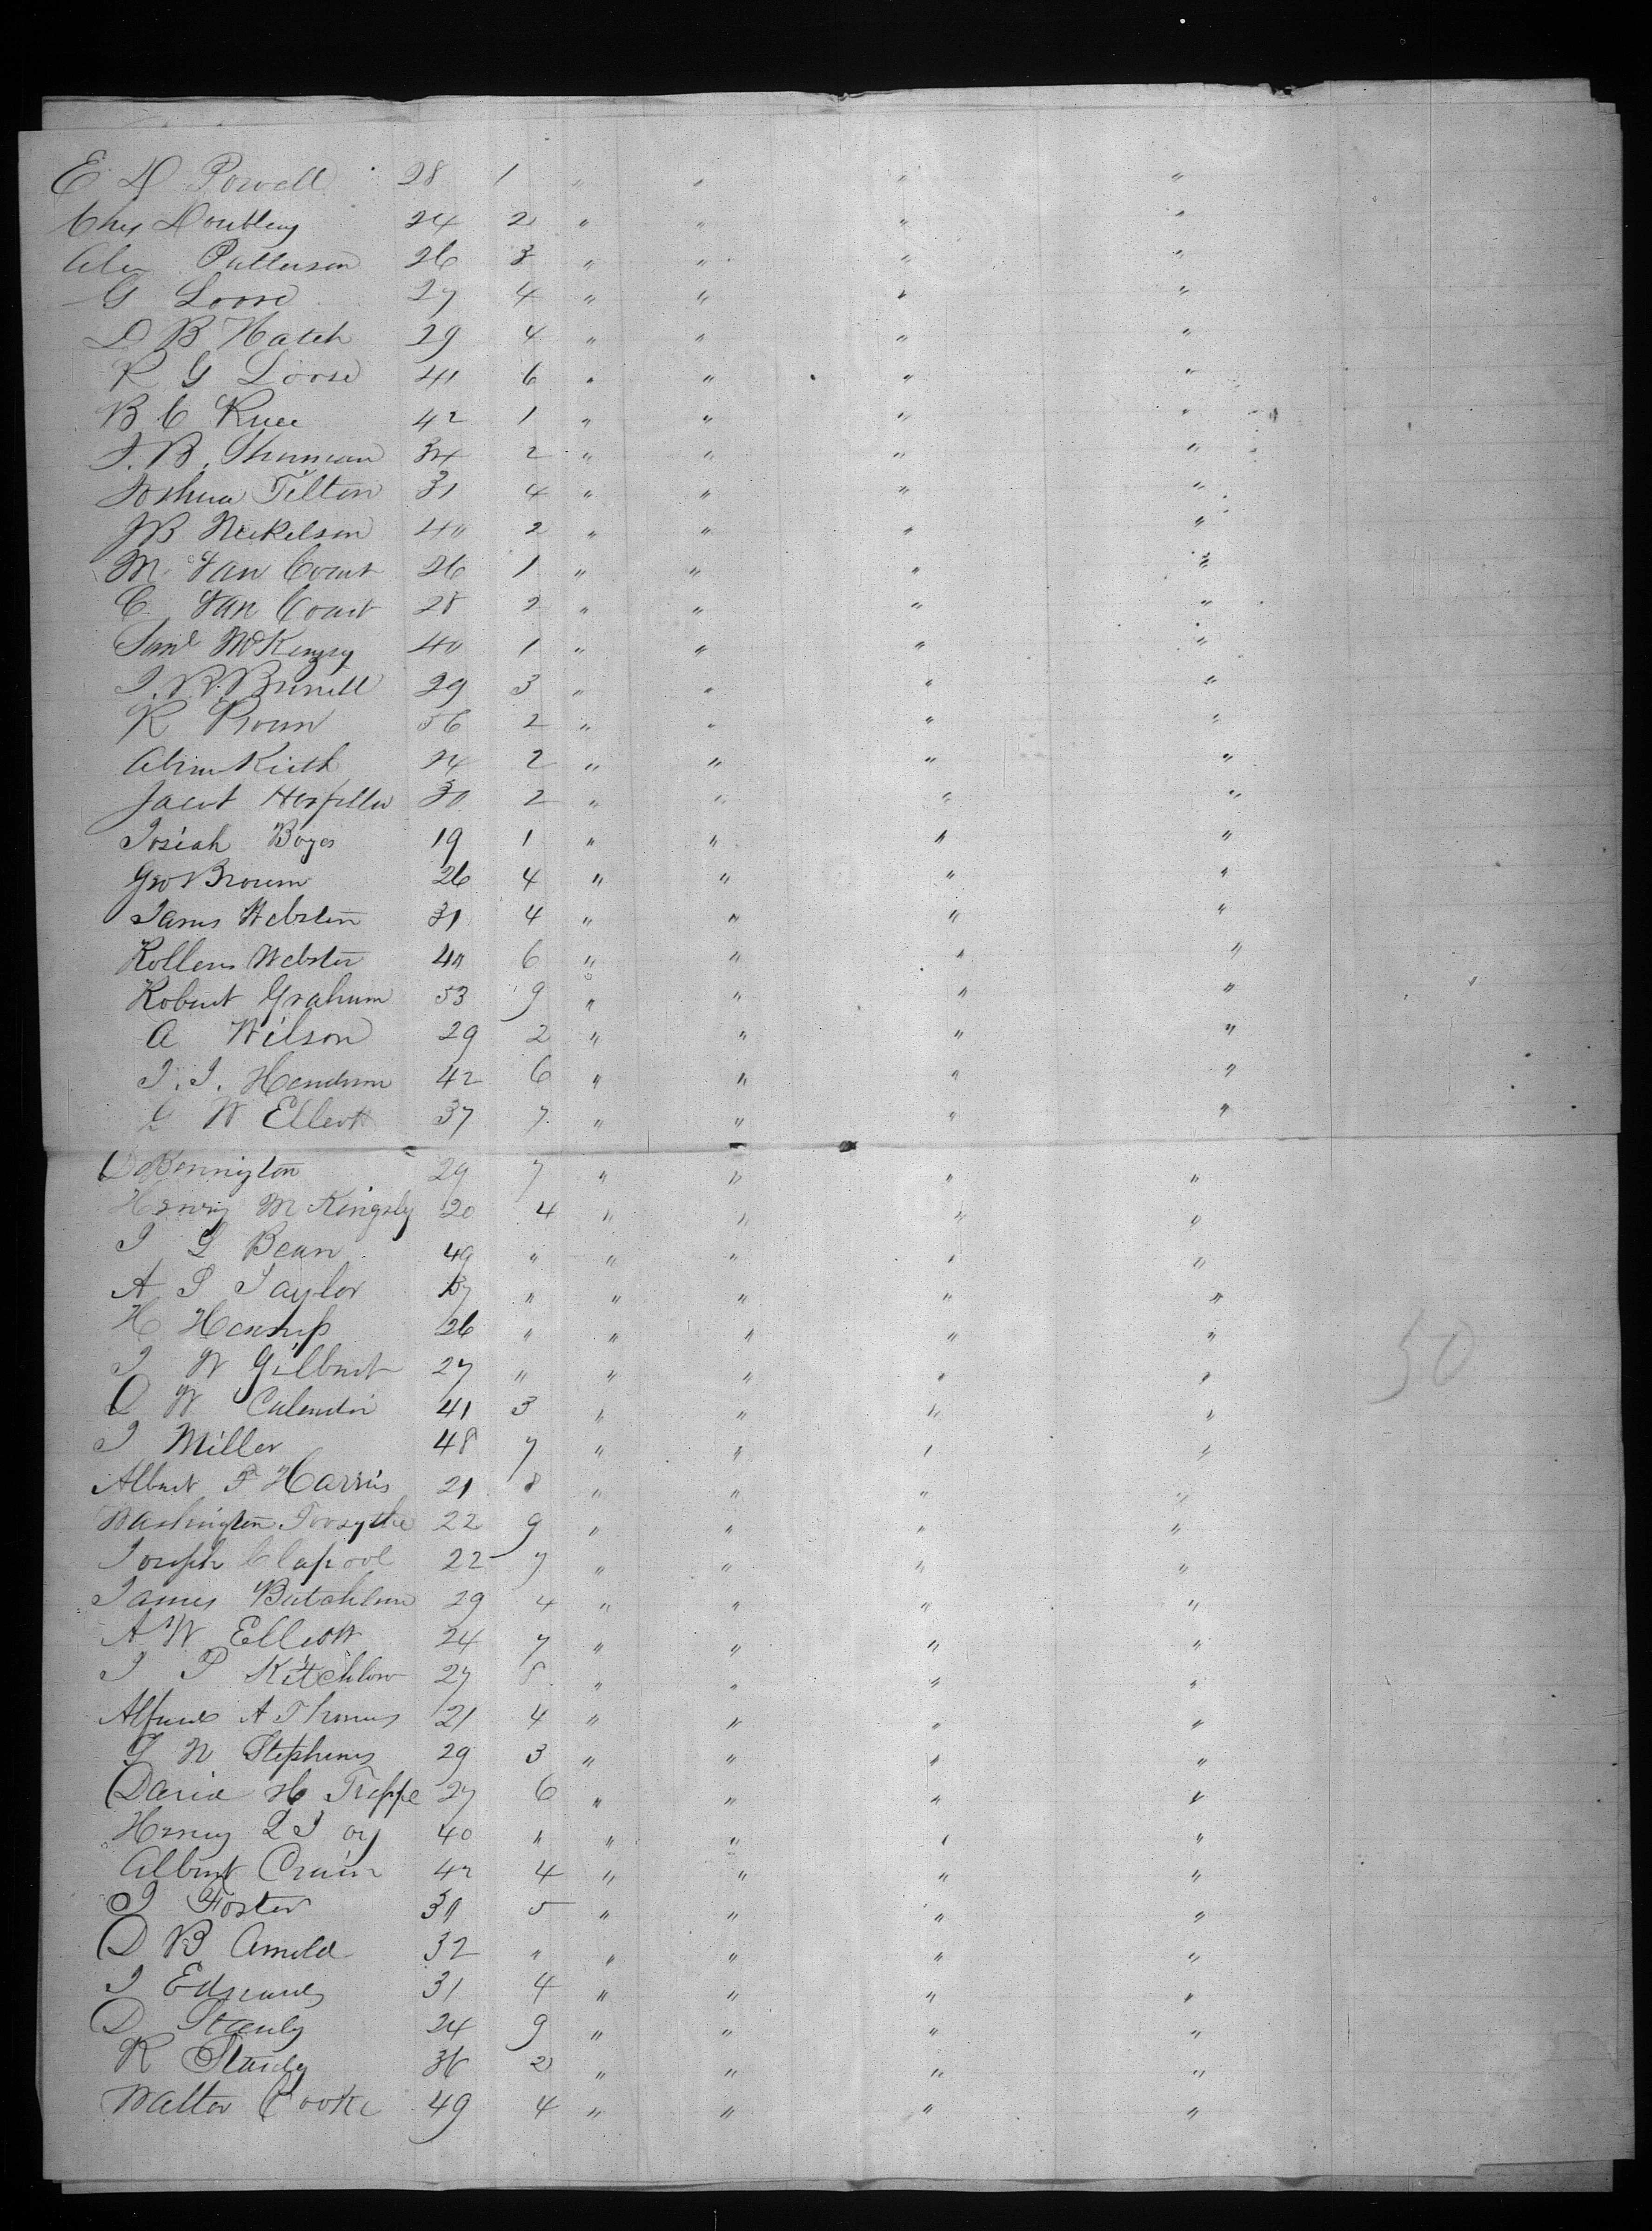 E D Powell 28 1 " " " "
Chas Doubleny 24 2 " " " "
Alex Patterson 26 3 " " " "
G Loose 27 4 " " " "
D B Hatch 29 4 " " " "
R G Loose 41 6 " " " "
B C Knee 42 1 " " " "
J. B. Shuman 34 2 " " " "
Joshua Tilton 31 4 " " " "
J B Neekelson 40 2 " " " "
M Van Court 26 1 " " " "
C Van Court 28 2 " " " "
Saml McKenzey 40 1 " " " "
J. R. Burnell 29 3 " " " "
R 56 2 " " " "
Abim Kieth 24 2 " " " "
Jacob 30 2 " " " "
Josiah Boyes 19 1 " " " "
Geo Brown 26 4 " " " "
James Webster 31 4 " " " "
Rollens Webster 40 6 " " " "
Robert Graham 53 9 " " " "
A Wilson 29 2 " " " "
J. J. 42 6 " " " "
G W Elleott 37 7 " " " "
D Bennington 29 7 " " " "
Henry M Kingsly 20 4 " " " "
J L Bean 49 " " " " "
A S Taylor 37 " " " " "
H 26 " " " " "
J W Gilbert 27 " " " " "
D W Calendir 41 3 " " " "
J Miller 48 7 " " " "
Albert F Harris 21 8 " " " "
Washington Forsythe 22 9 " " " "
Joseph Clapool 22 7 " " " "
James Batchlem 29 4 " " " "
A W Elleott 24 7 " " " "
J P Kitchlow 27 8 " " " "
Alfred A Thomas 21 4 " " " "
S N Stephens 29 3 " " " "
David H Treppe 27 6 " " " "
Henry L Joy 40 " " " " "
Albert Crain 42 4 " " " "
J Foster 30 5 " " " "
D B Arnold 32 " " " " "
J Edwards 31 4 " " " "
D Stanly 24 9 " " " "
R Stanly 36 2 " " " "
Walter Cooke 49 4 " " " "
50